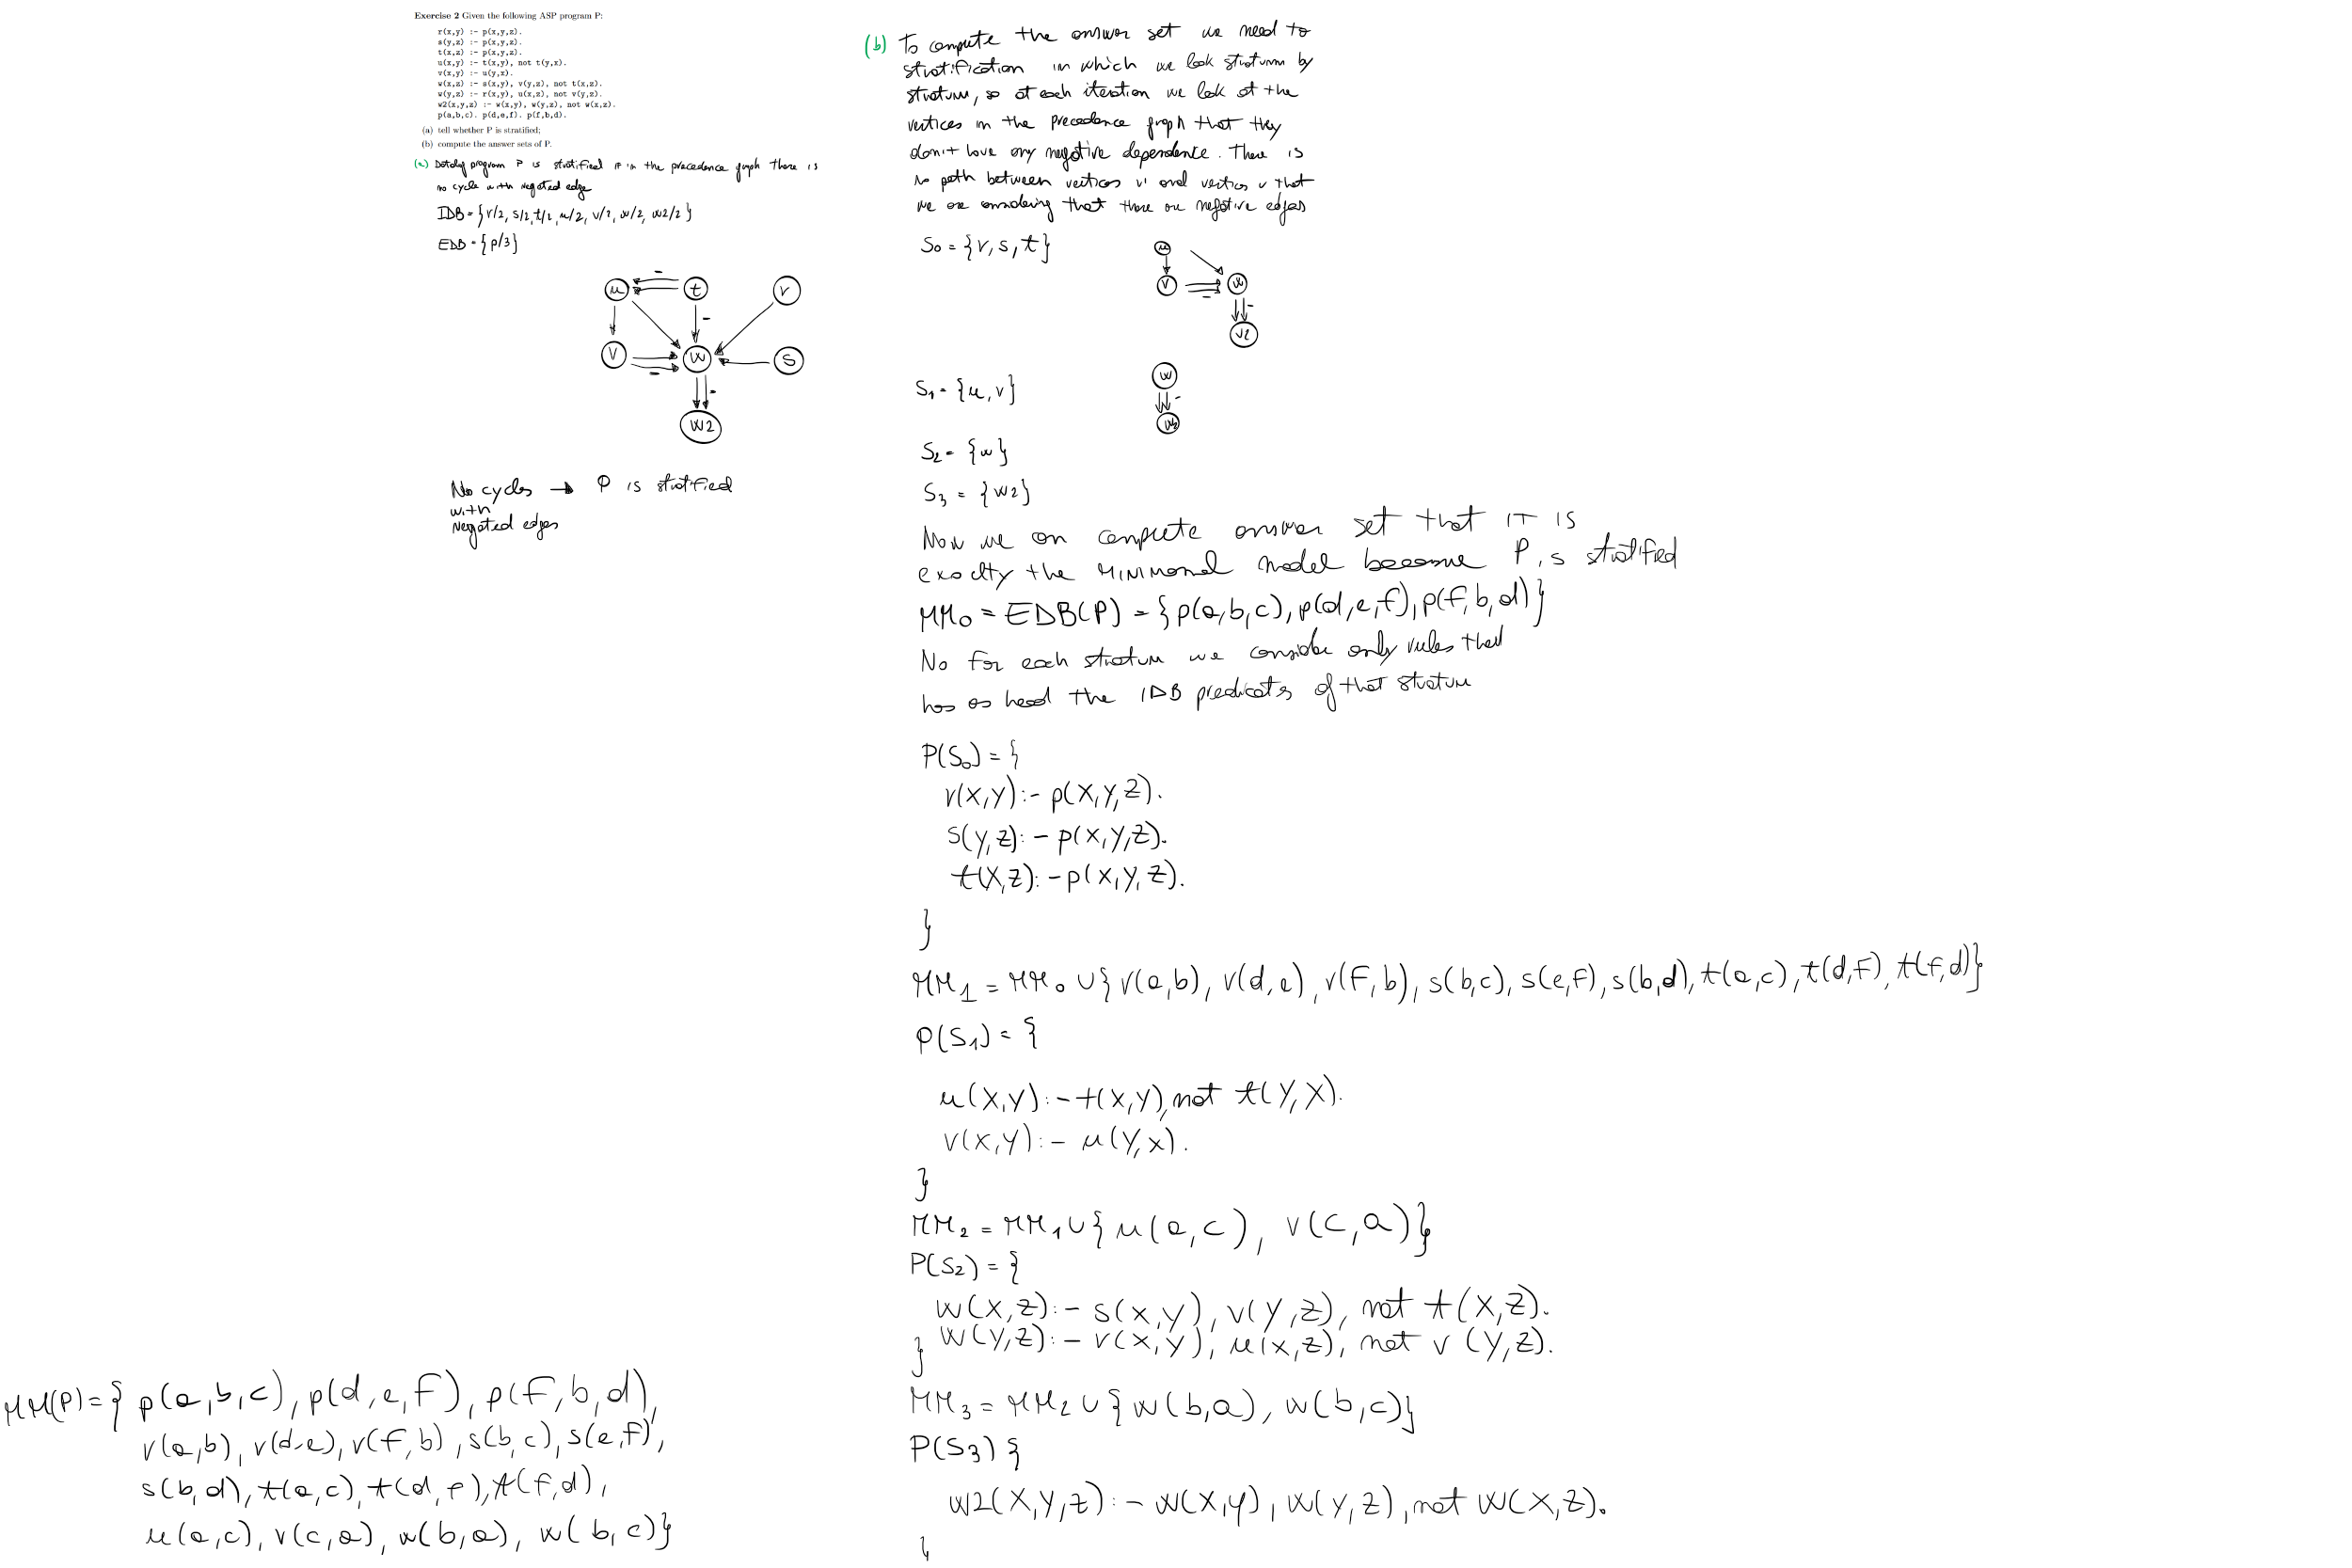 Exercise 2 Given the following ASP program P:
r(x,y) :- p(x,y,z).
s(y,z) :- p(x,y,z).
t(x,z) :- p(x,y,z).
u(x,y) :- t(x,y), not t(y,x).
v(x,y) :- u(y,x).
w(x,z) :- s(x,y), v(y,z), not t(x,z).
w(y,z) :- r(x,y), u(x,z), not v(y,z).
w2(x,y,z) :- w(x,y), w(y,z), not w(x,z).
p(a,b,c). p(d,e,f). p(f,b,d).
(a) tell whether P is stratified;
(b) compute the answer sets of P.
(a) Datalog program P is stratified if in the precedence graph there is
no cycle with negated edge
IDB = {r/2, s/2, t/2, u/2, v/2, w/2, w2/2}
EDB = {p/3}
u t r
-
-
v w s
-
-
w2
No cycles → P is stratified
with
Negated edges
(b) To compute the answer set we need to
stratification in which we look stratum by
stratum, so at each iteration we look at the
vertices in the precedence graph that they
don't have any negative dependence. There is
no path between vertices v' and vertices v that
we are considering that there are negative edges
S0 = {r, s, t}
u
v w
-
-
w2
S1 = {u, v}
w
-
w2
S2 = {w}
S3 = {w2}
Now we can compute answer set that it is
exaclty the minimanal model because P is stratified
MM0 = EDB(P) = {p(a,b,c), p(d,e,f), p(f,b,d)}
No for each stratum we consider only rules that
has as head the IDB predicates of that stratum
P(S0) = {
r(X,Y):- p(X,Y,Z).
s(Y,Z):- p(X,Y,Z).
t(X,Z):- p(X,Y,Z).
}
MM1 = MM0 ∪ {r(a,b), r(d,e), r(f,b), s(b,c), s(e,f), s(b,d), t(a,c), t(d,f), t(f,d)}
P(S1) = {
u(X,Y):- t(X,Y), not t(Y,X).
v(X,Y):- u(Y,X).
}
MM2 = MM1 ∪ {u(a,c), v(c,a)}
P(S2) = {
w(X,Z):- s(X,Y), v(Y,Z), not t(X,Z).
} w(Y,Z):- r(X,Y), u(X,Z), not v(Y,Z).
MM3 = MM2 ∪ {w(b,a), w(b,c)}
P(S3) {
w2(X,Y,Z):- w(X,Y), w(Y,Z), not w(X,Z).
}
MM(P) = { p(a,b,c), p(d,e,f), p(f,b,d),
r(a,b), r(d,e), r(f,b), s(b,c), s(e,f),
s(b,d), t(a,c), t(d,f), t(f,d),
u(a,c), v(c,a), w(b,a), w(b,c)}